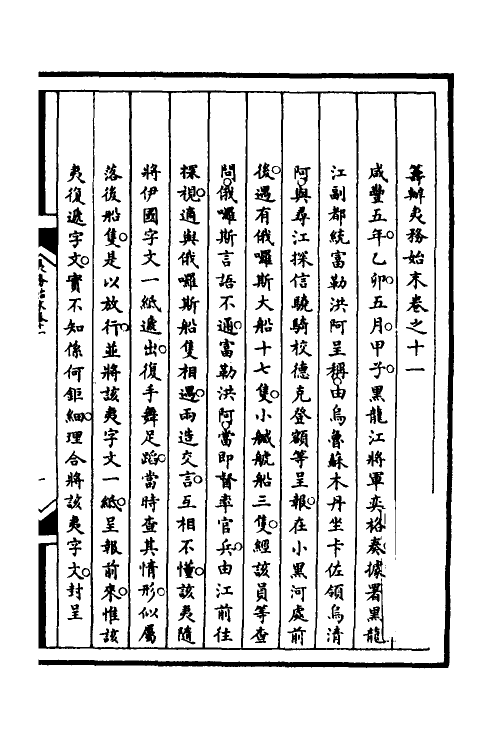 籌辦夷務始末卷之十一
咸豐五年乙卯五月甲子黑龍江將軍奕格奏據署黑龍
江副都統富勒洪阿呈稱由烏魯蘇木丹坐卡佐領烏清
阿與尋江探信驍騎校德克登額等呈報在小黑河處前
後遇有俄囉斯大船十七隻小舢舨船三隻經該員等查
問俄囉斯言語不通富勒洪阿當即督率官兵由江前往
探視適與俄囉斯船隻相遇兩造交言互相不懂該夷隨
將伊國字文一紙遞出復手舞足蹈當時查其情形似屬
落後船隻是以放行並將該夷字文一紙呈報前來惟該
夷復遞字文實不知係何鉅細理合將該夷字文封呈